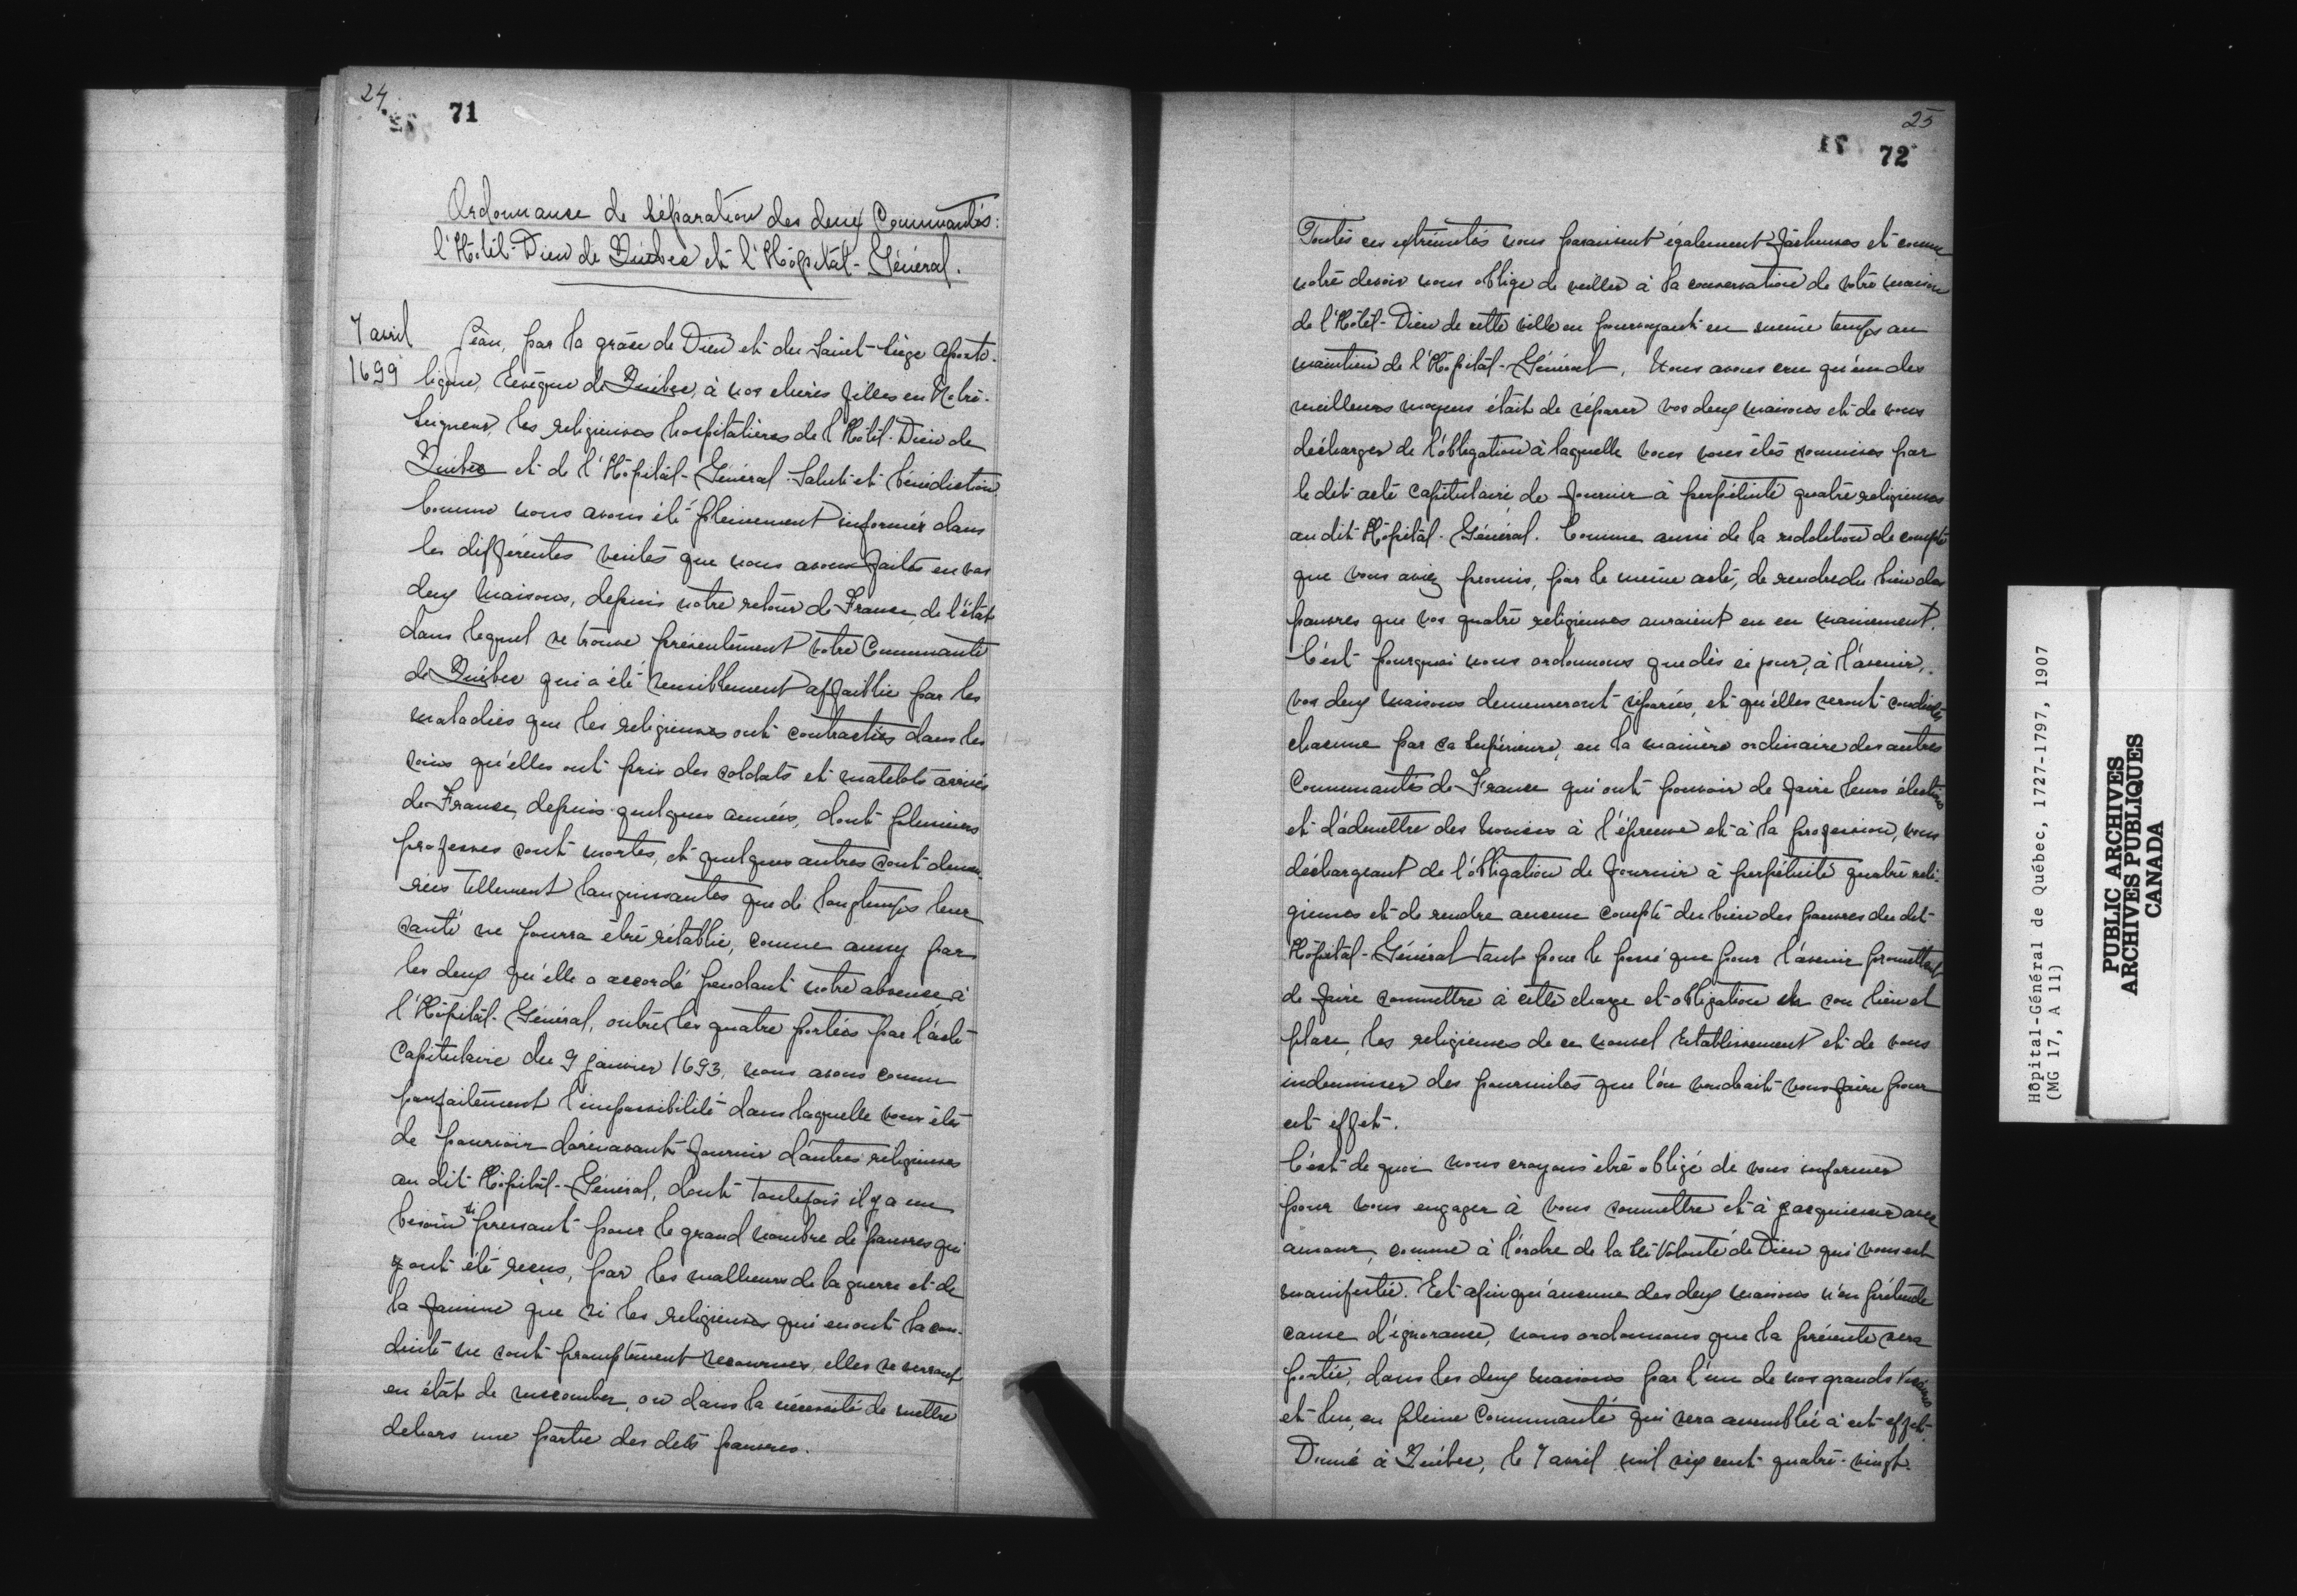 24
71
Ordonnance de séparation des deux Communautés:
l'Hôtel-Dieu de Québec et l'Hôpital-Général.
7 avril
1699
Jean, par la grâce de Dieu et du Saint-Siège Aposto-
lique, Evêque de Québec, à nos chères filles en Notre-
Seigneur, les religieuses hospitalières de l'Hôtel-Dieu de
Québec et de l'Hôpital-Général. Salut et bénédiction
Comme nous avons été pleinement informés dans
les différentes visites que nous avons faites en vos
deux maisons, depuis notre retour de France, de l'état
dans lequel se trouve présentement votre Communauté
de Québec qui a été sensiblement affaiblie par les
maladies que les religieuses ont contractées dans les
soins qu'elles ont pris des soldats et matelots arrivés
de France, depuis quelques années, dont plusieurs
professes sont mortes, et quelques autres sont demeu-
rées tellement languissantes que de longtemps leur
santé ne pourra être rétablie, comme aussy par
les deux qu'elle a accordé pendant notre absence à
l'Hôpital-Général, outre les quatre portées par l'acte
Capitulaire du 9 janvier 1693, nous avons connu
parfaitement l'impossibilité dans laquelle vous êtes
de pouvoir dorénavant fournir d'autres religieuses
au dit Hôpital-Général, dont toutefois il y a un
besoin si pressant pour le grand nombre de pauvres qui
y ont été reçus, par les malheurs de la guerre et de
la famine que si les religieuses qui en ont la con-
duite ne sont promptement secourues, elles se verront
en état de succomber, ou dans la nécessité de mettre
dehors une partie des dits pauvres.
25
72
Toutes ces extrémités nous paraissent également fâcheuses et comme
notre devoir nous oblige de veiller à la conservation de votre maison
de l'Hôtel-Dieu de cette ville en pourvoyant en même temps au
maintien de l'Hôpital-Général, Nous avons cru qu'un des
meilleurs moyens était de séparer vos deux maisons et de vous
décharger de l'obligation à laquelle vous vous êtes soumises par
le dit acte Capitulaire de fournir à perpétuité quatre religieuses
au dit Hôpital-Général. Comme aussi de la reddition de compte
que vous aviez promis, par le même acte, de rendre du bien des
pauvres que vos quatre religieuses auraient eu en maniement.
C'est pourquoi nous ordonnons que dès ce jour, à l'avenir,
vos deux maisons demeureront séparées, et qu'elles seront conduites
chacune par sa Supérieure, en la manière ordinaire des autres
Communautés de France qui ont pouvoir de faire leurs élections
et d'admettre des novices à l'épreuve et à la profession, vous
déchargeant de l'obligation de fournir à perpétuité quatre reli-
gieuses et de rendre aucun compte du bien des pauvres du dit
Hôpital-Général tant pour le passé que pour l'avenir promettant
de faire soumettre à cette charge et obligation en son lieu et
place, les religieuses de ce nouvel Etablissement et de vous
indemniser des poursuites que l'on voudrait vous faire pour
cet effet.
C'est de quoi nous croyons être obligé de vous informer
pour vous engager à vous soumettre et à y acquiescer avec
amour, comme à l'ordre de la Ste Volonté de Dieu qui vous est
manifestée. Et afin qu'aucune des deux maisons n'en prétende
cause d'ignorance, nous ordonnons que la présente sera
portée, dans les deux maisons par l'un de nos grands Vicaires
et lue, en pleine Communauté qui sera assemblée à cet effet.
Donné à Québec, le 7 avril mil six cent quatre-vingt-
Hôpital-Général de Québec, 1727-1797, 1907
(MG 17, A 11)
PUBLIC ARCHIVES
ARCHIVES PUBLIQUES
CANADA